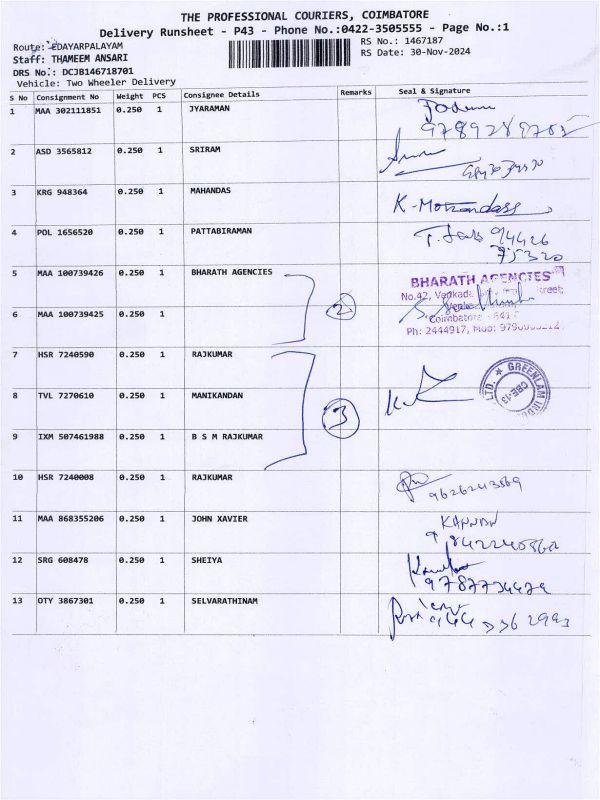 THE PROFESSIONAL COURIERS, COIMBATORE
Delivery Runsheet - P43 - Phone No.:0422-3505555 - Page No.:1
Route: EDAYARPALAYAM
RS No.: 1467187
Staff: THAMEEM ANSARI
RS Date: 30-Nov-2024
DRS No.: DCJB146718701
Vehicle: Two Wheeler Delivery
S No Consignment No Weight PCS Consignee Details Remarks Seal & Signature
1 MAA 302111851 0.250 1 JYARAMAN
2 ASD 3565812 0.250 1 SRIRAM
3 KRG 948364 0.250 1 MAHANDAS
4 POL 1656520 0.250 1 PATTABIRAMAN
94426
75320
5 MAA 100739426 0.250 1 BHARATH AGENCIES
BHARATH AGENCIES
No.42,
Coimbatore
Ph: 2444917,
2
6 MAA 100739425 0.250 1
7 HSR 7240590 0.250 1 RAJKUMAR
8 TVL 7270610 0.250 1 MANIKANDAN
GREENLAM
CBE-13
LTD.
3
9 IXM 507461988 0.250 1 B S M RAJKUMAR
10 HSR 7240008 0.250 1 RAJKUMAR
9626243569
11 MAA 868355206 0.250 1 JOHN XAVIER
KANNAN
12 SRG 608478 0.250 1 SHEIYA
13 OTY 3867301 0.250 1 SELVARATHINAM